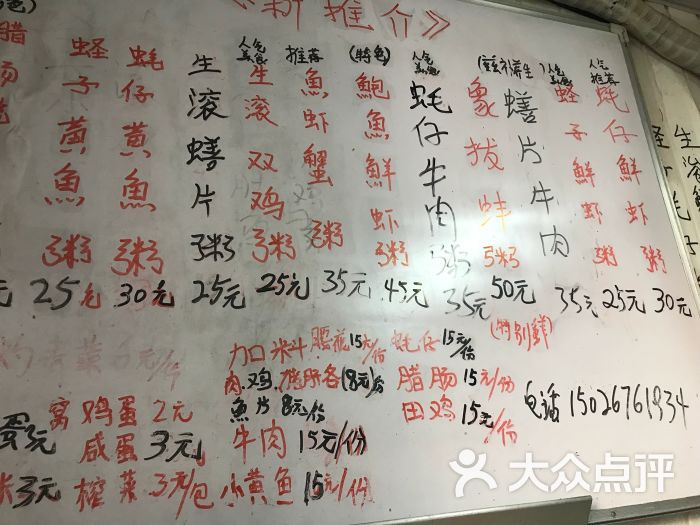 《新推介》
腊
肠
蛏子黄魚粥 25元
蚝仔黄魚粥 30元
生滚鳝片粥 25元
人气
生滚双鸡粥 25元
推荐
魚虾蟹粥 35元
(特色)
鮑魚鮮虾粥 45元
人气
蚝仔牛肉粥 35元
象拔蚌粥 50元
(特别鲜)
鳝片牛肉
35元
人气
蛏子鮮虾粥 25元
人气推荐
蚝仔鮮虾粥 30元
生滚
加口米斗
腰花15元/份
蚝仔15元/份
肉.鸡.
各(8元)份
腊肠15元/份
魚片8元/份
田鸡15元/份
窝鸡蛋2元
蛋3元
咸蛋3元
牛肉15元/份
3元
榨菜3元/包
小黄魚15元/份
电话15026761934
大众点评